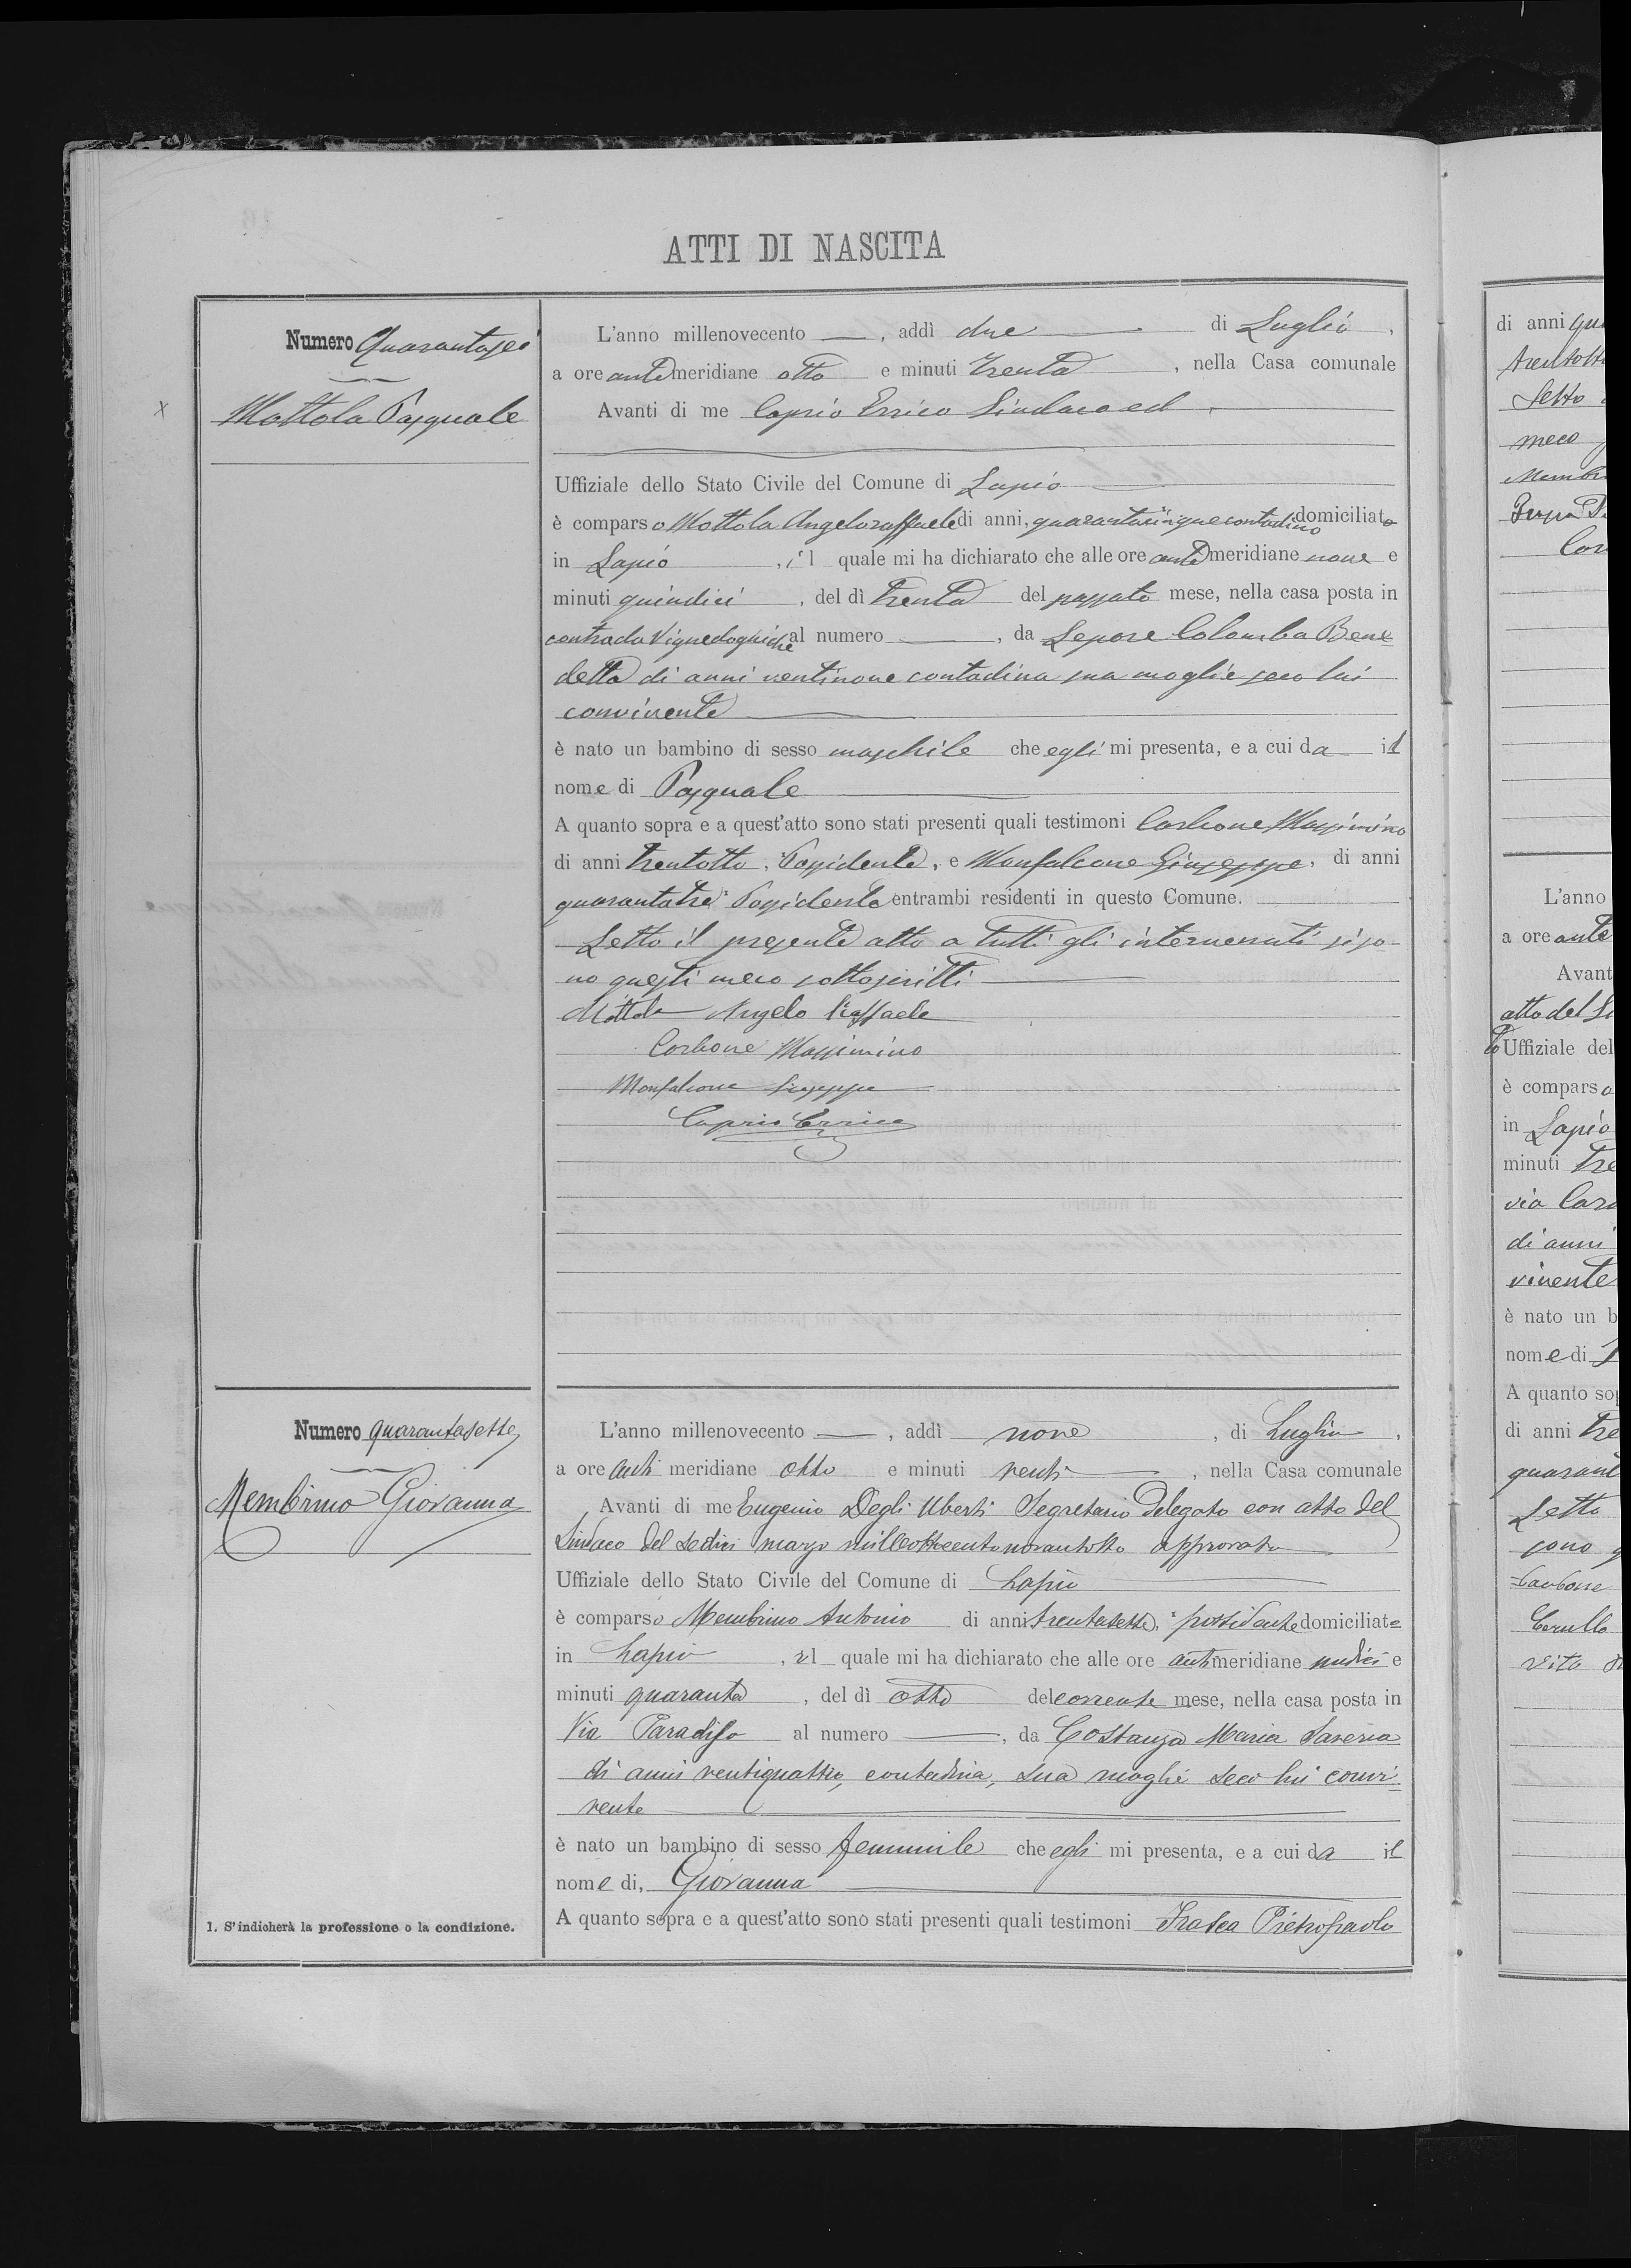 ATTI DI NASCITA
Numero Quarantasei
Mottola Pasquale
L'anno millenovecento —, addì due di Luglio,
a ore antimeridiane otto e minuti trenta, nella Casa comunale
Avanti di me Caprio Errico Sindaco ed
Uffiziale dello Stato Civile del Comune di Lapio
è comparso Mottola Angeloraffaele di anni, quarantacinque contadino domiciliato
in Lapio, il quale mi ha dichiarato che alle ore antimeridiane nove e
minuti quindici, del dì trenta del passato mese, nella casa posta in
contrada al numero —, da Lepore Colomba Bene-
detta di anni ventinove contadina sua moglie seco lui
convivente
è nato un bambino di sesso maschile che egli mi presenta, e a cui da il
nome di Pasquale
A quanto sopra e a quest'atto sono stati presenti quali testimoni Carbone Massimino
di anni trentotto, Possidente, e Monfalcone Giuseppe, di anni
quarantatre Possidente entrambi residenti in questo Comune.
Letto il presente atto a tutti gli intervenuti si so-
no questi meco sottoscritti
Mottola Angelo Raffaele
Carbone Massimino
Monfalcone Giuseppe
Caprio Errico
Numero quarantasette
Membrino Giovanna
L'anno millenovecento —, addì nove, di Luglio,
a ore anti meridiane otto e minuti venti, nella Casa comunale
Avanti di me Eugenio Degli Uberti Segretario Delegato con atto del
Sindaco del sedici marzo milleottocentonovantotto approvato
Uffiziale dello Stato Civile del Comune di Lapio
è comparso Membrino Antonio di anni trentasette, possidente domiciliato
in Lapio, il quale mi ha dichiarato che alle ore antimeridiane undici e
minuti quaranta, del dì otto del corrente mese, nella casa posta in
Via Paradiso al numero —, da Costanza Maria Saveria
di anni ventiquattro, contadina, sua moglie seco lui convi-
vente
è nato un bambino di sesso femminile che egli mi presenta, e a cui da il
nome di, Giovanna
A quanto sopra e a quest'atto sono stati presenti quali testimoni Pietropaolo
1. S'indicherà la professione o la condizione.
di anni
trentotto
Letto
meco
L'anno
a ore ante
Avant
atto del
Uffiziale del
è comparso
in Lapio
minuti
via
di anni
vivente
è nato un b
nome di
A quanto sop
di anni tre
quarant
Letto
sono
Carbone
Cerullo
Vito